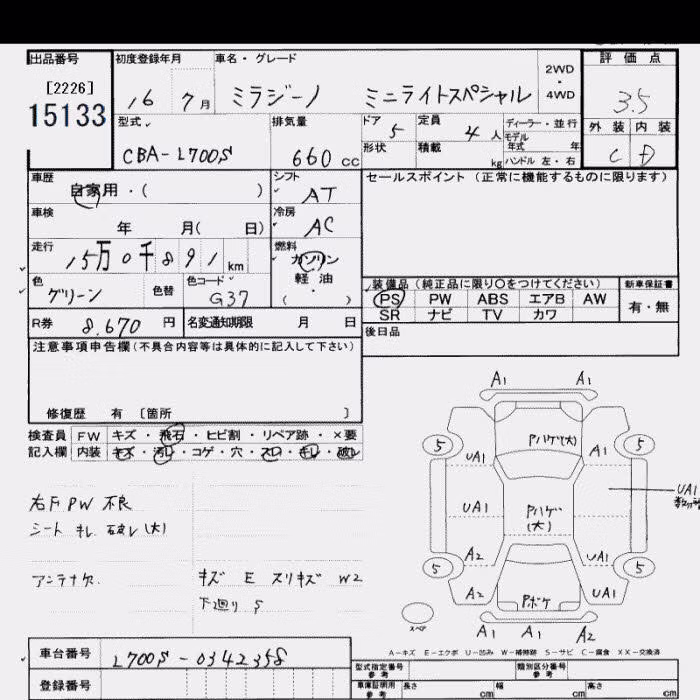 出品番号
[2226]
15133
初度登録年月
16 7月
車名・グレード
ミラジーノ ミニライトスペシャル
2WD
・
4WD
評価点
3.5
型式
CBA-L700S
排気量
660 cc
ドア 5
形状
定員 4人
積載 kg
ディーラー・並行
モデル
年式 年
ハンドル 左・右
外装 内装
C D
車歴
自家用・( )
シフト
AT
セールスポイント (正常に機能するものに限ります)
車検
年 月( 日)
冷房
AC
走行
15万0千891 km
燃料
ガソリン
軽油
( ・ )
色
グリーン
色替
色コード
G37
装備品(純正品に限り○をつけてください)
PS PW ABS エアB AW
SR ナビ TV カワ
新車保証書
有・無
R券 8,670 円
名変通知期限 月 日
後日品
注意事項申告欄(不具合内容等は具体的に記入して下さい)
修復歴 有 [箇所 ]
検査員 FW キズ・飛石・ヒビ割・リペア跡・×要
記入欄 内装 キズ・汚レ・コゲ・穴・スレ・キレ・破レ
右F PW 不良
シート キレ 破レ(大)
アンテナ欠
キズ E スリキズ W2
下廻り S
A1 A1
Pハゲ(大)
5 5
UA1 A1
UA1
UA1
Pハゲ
(大)
A2 UA1
5 5
A2 UA1
Pボケ
スペア
A1 A1 A2
A-キズ E-エクボ U-凹み W-補修跡 S-サビ C-腐食 XX-交換済
車台番号
L700S-0342358
登録番号
型式指定番号
参考
類別区分番号
参考
車庫証明用
参考
長さ cm 幅 cm 高さ cm